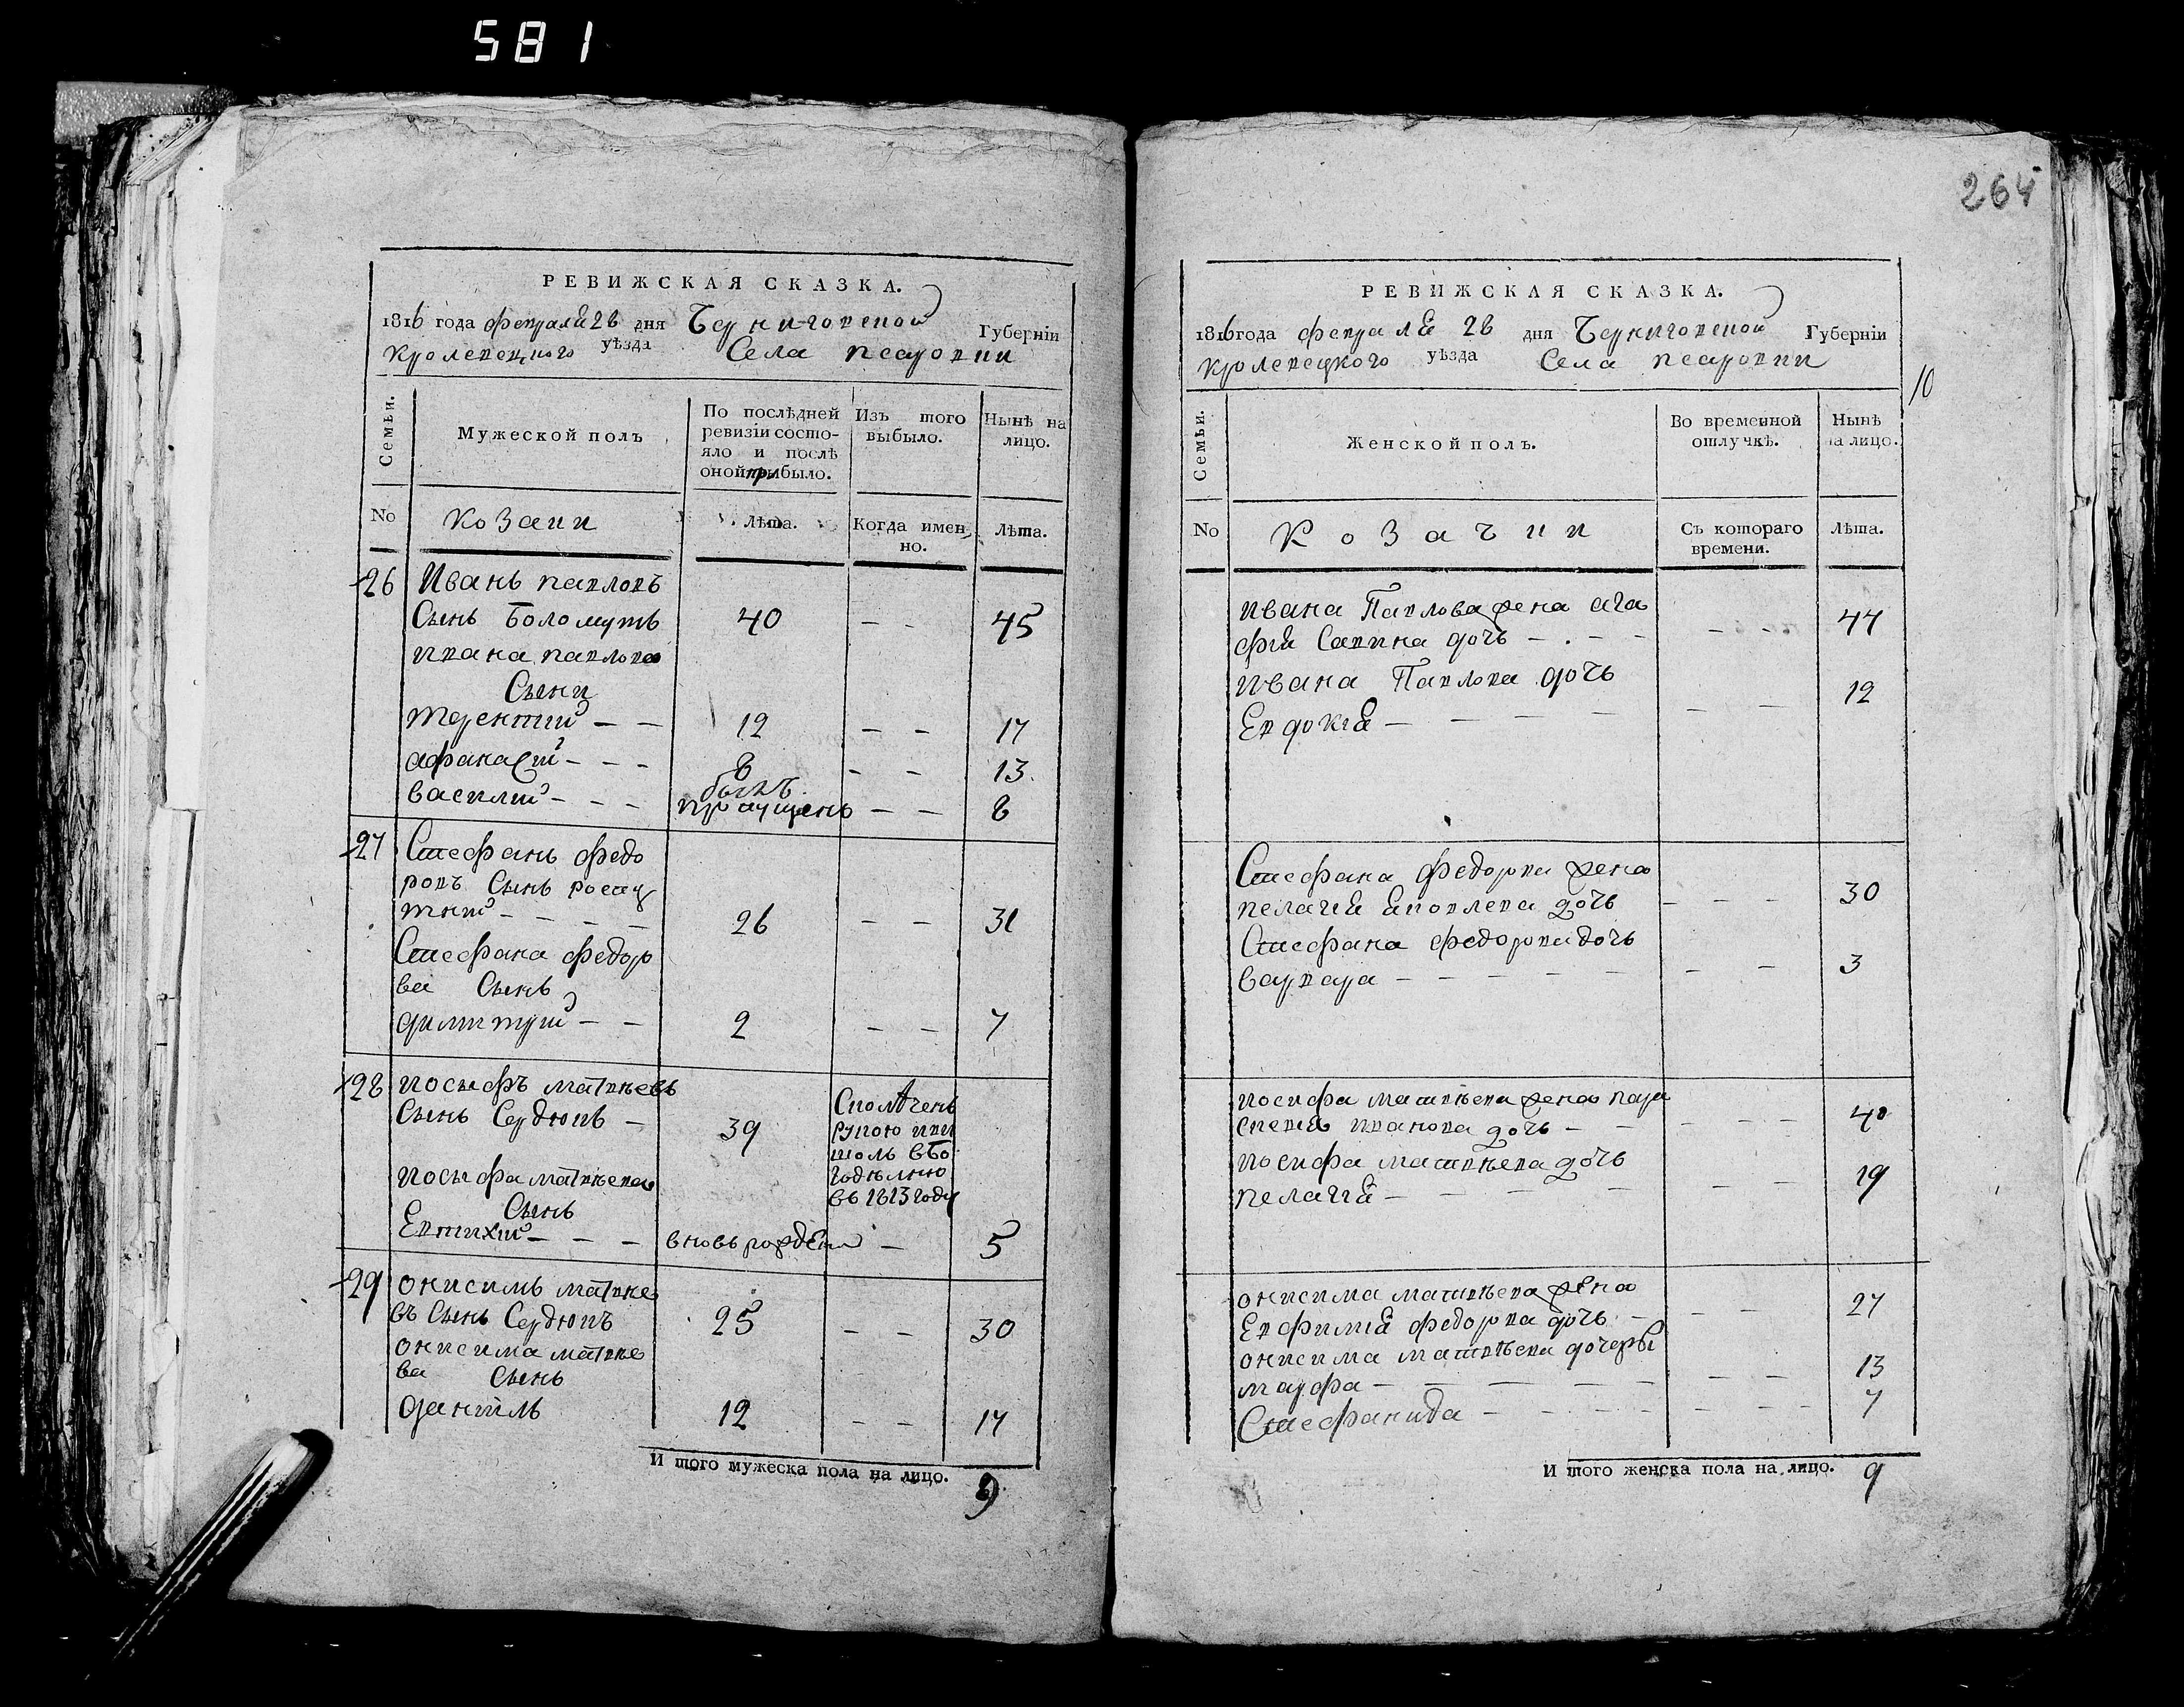 581
264
РЕВИЖСКАЯ СКАЗКА.
1816 года февраля 28 дня Черниговской Губерніи
Кролевецкого уѣзда Села Псаровки
Семьи.
Мужеской полъ
По послѣдней
ревизіи состо-
яло и послѣ
оной прибыло.
Изъ того
выбыло.
Нынѣ на
лицо.
No
Козаки
Лѣта.
Когда имен
но.
Лѣта.
26 Иванъ павловъ
Сынъ Боломутъ 40 - - 45
ивана павлова
Сыни
терентий - - 12 - - 17
афанасий - - - 8 - - 13
василий - - - былъ
пропущенъ - - 8
27 Стефанъ федо
ровъ Сынъ
тний - - - 26 - - 31
Стефана федор
ва Сынъ
димитрий - - 2 - - 7
28 иосыфъ матвѣевъ
Сынъ Сердюкъ - 39
въ 1813 году
иосыфа матвѣева
Сынъ
Евтихий - - - вновь рожденъ - 5
29 онисимъ матвѣе
въ Сынъ Сердюкъ 25 - - 30
онисима матвѣе
ва Сынъ
даниилъ 12 - - 17
И того мужеска пола на лицо. 9
РЕВИЖСКАЯ СКАЗКА.
1816 года февраля 28 дня Черниговской Губерніи
Кролевецкого уѣзда Села Псаровки
10
Семьи.
Женской полъ.
Во временной
отлучкѣ.
Нынѣ
на лицо.
No
Козачки
Съ котораго
времени.
Лѣта.
ивана Павлова жена ага
фия Савина дочь - - - - - 44
ивана Павлова дочь
Евдокия - - - - - - 12
Стефана федорва жена
пелагия яковлева дочь - - - 30
Стефана федорва дочь
варвара - - - - - - - 3
иосифа матвѣева жена пара
скевия иванова дочь - - - - - 40
иосифа матвѣева дочь
пелагия - - - - - - 19
онисима матвѣева жена
Евфимия федорва дочь - - - 27
онисима матвѣева дочери
марфа - - - - - - - - 13
Стефанида - - - - - - - - 7
И того женска пола на лицо. 9